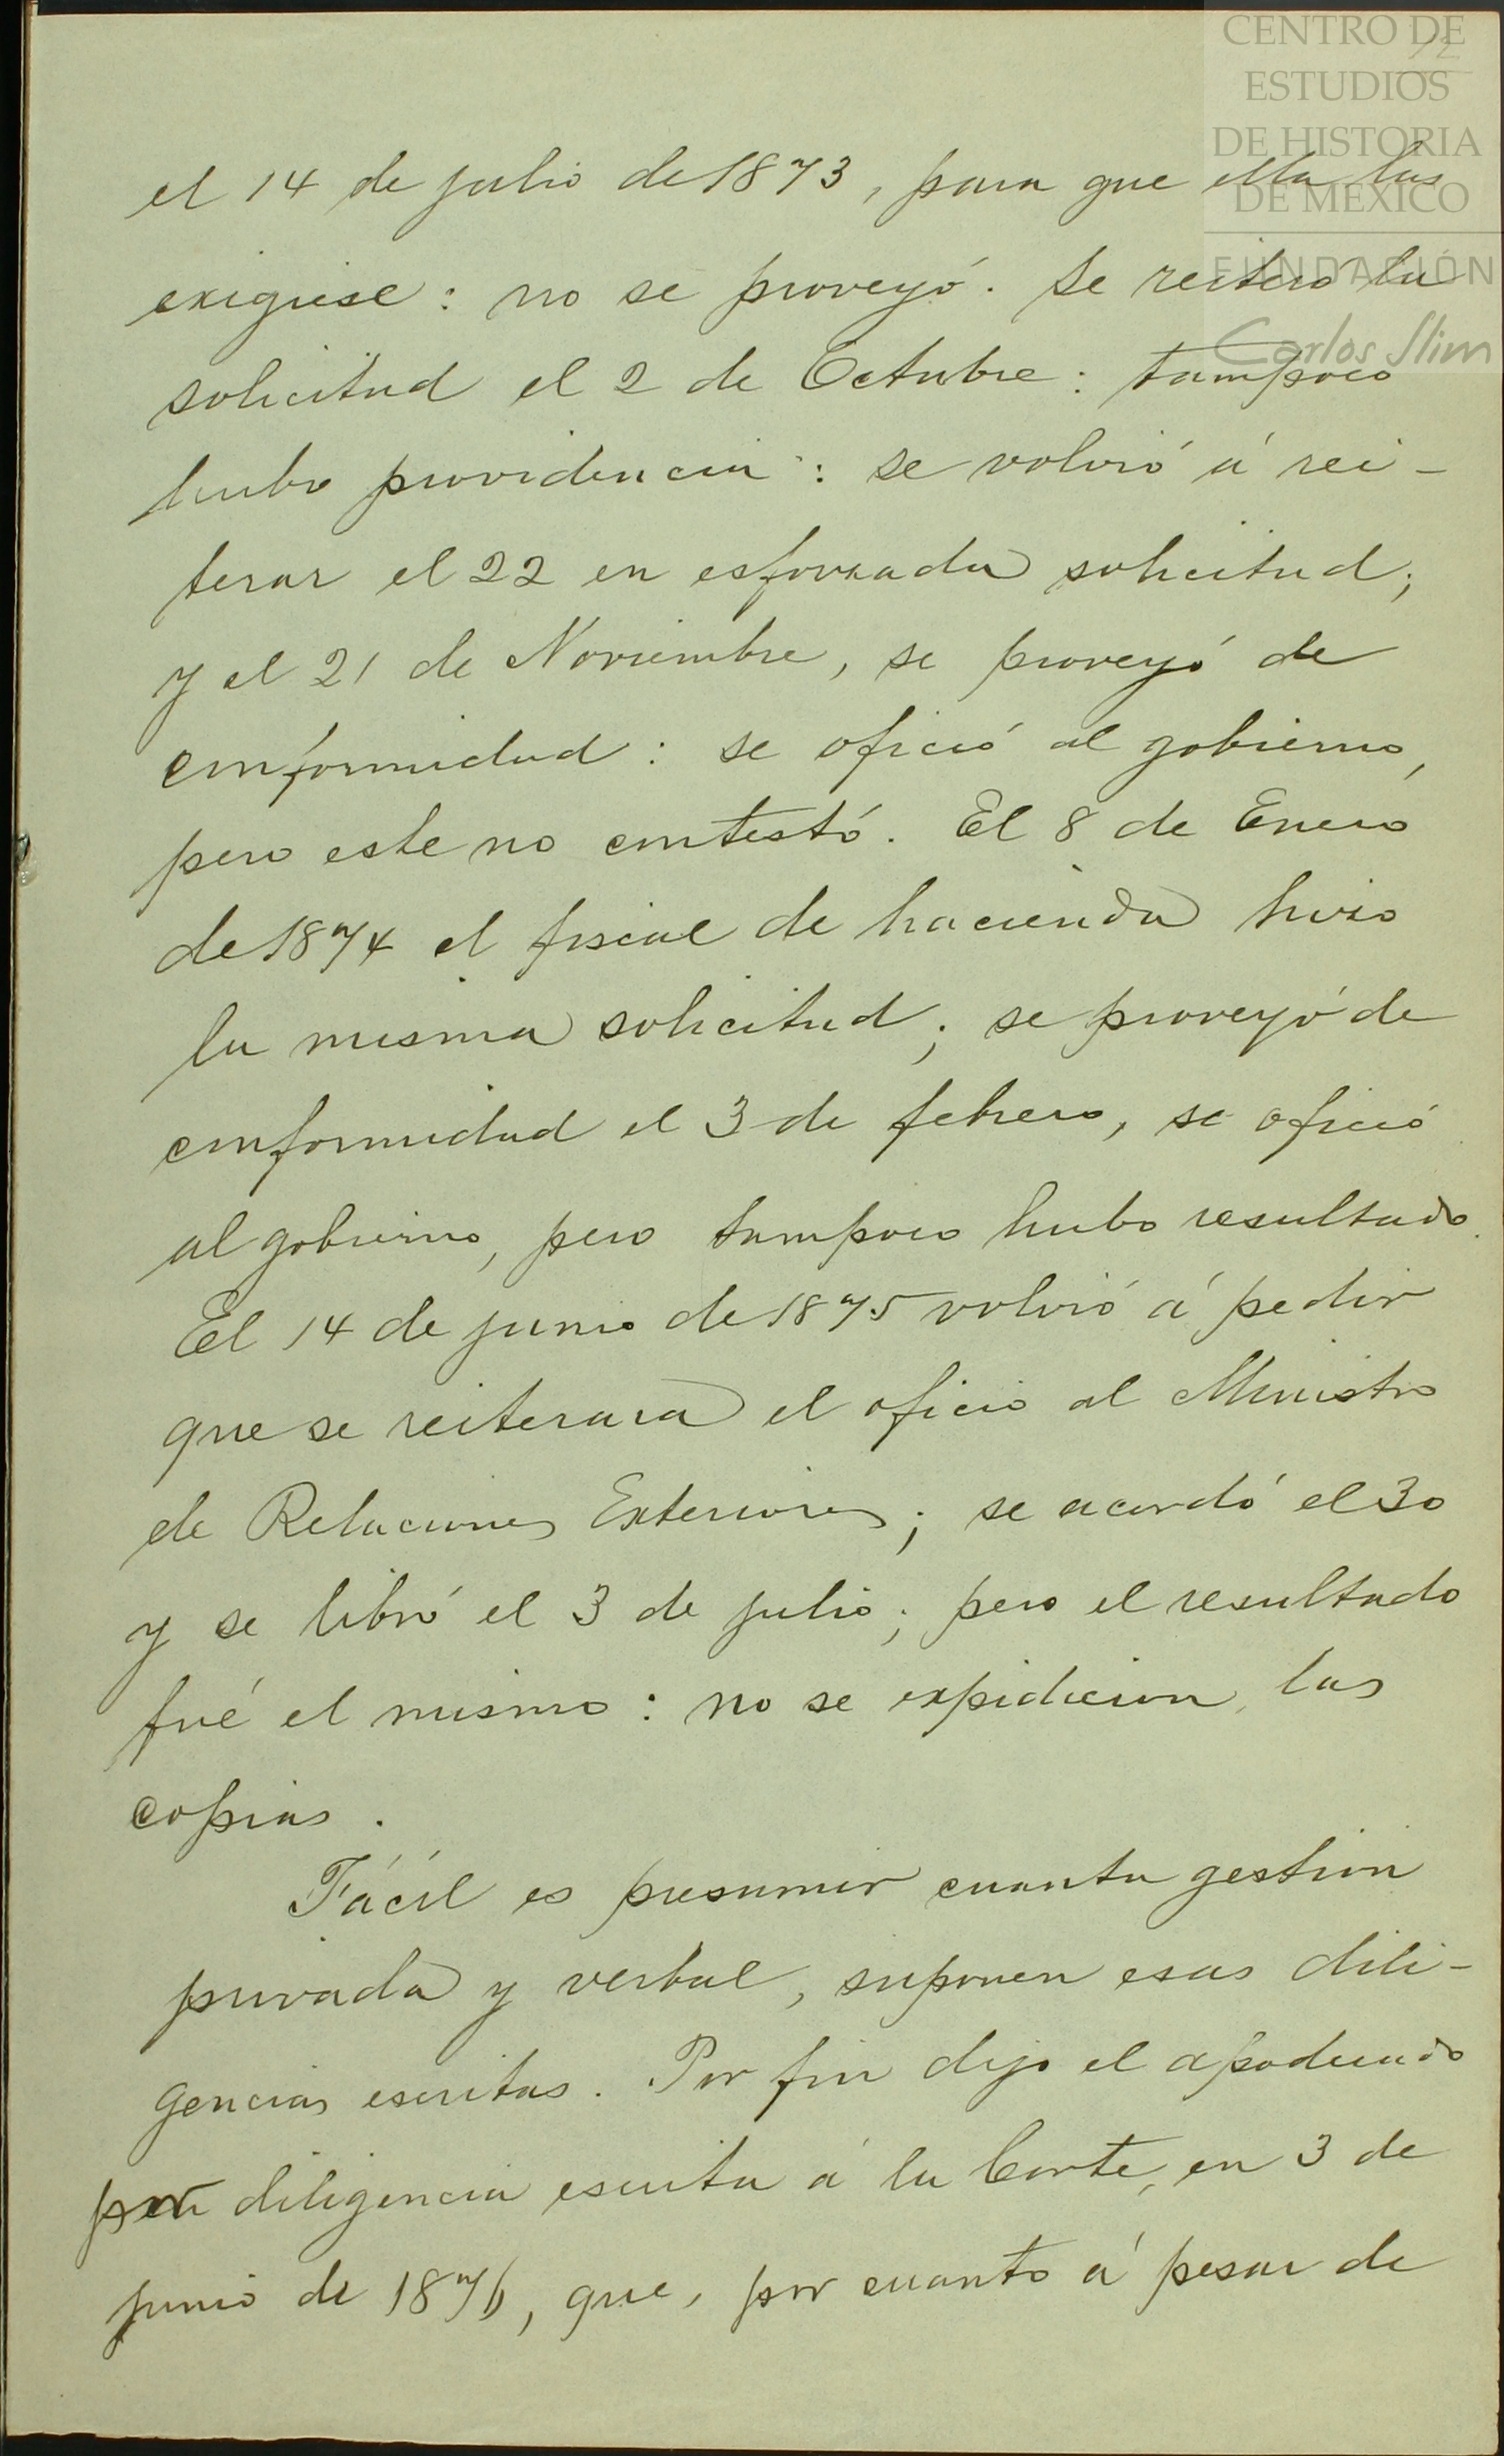 CENTRO DE
ESTUDIOS
DE HISTORIA
DE MEXICO
FUNDACIÓN
Carlos Slim
12
el 14 de julio de 1873, para que ella las
exigiese: no se proveyó. Se reiteró la
solicitud el 2 de Octubre: tampoco
hubo providencia: se volvió á rei-
terar el 22 en esforzada solicitud;
y el 21 de Noviembre, se proveyó de
conformidad: se ofició al gobierno,
pero este no contestó. El 8 de Enero
de 1874 el fiscal de hacienda hizo
la misma solicitud; se proveyó de
conformidad el 3 de febrero, se ofició
al gobierno, pero tampoco hubo resultado.
El 14 de junio de 1875 volvió á pedir
que se reiterara el oficio al Ministro
de Relaciones Exteriores; se acordó el 30
y se libró el 3 de julio; pero el resultado
fué el mismo: no se expidieron las
copias.
Fácil es presumir cuanta gestion
privada y verbal, suponen esas dili-
gencias escritas. Por fin dijo el apoderado
por diligencia escrita á la Corte, en 3 de
junio de 1876, que, por cuanto á pesar de